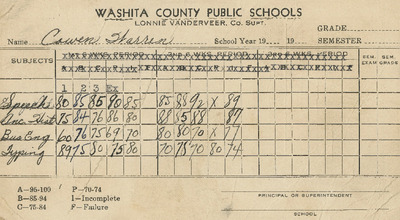 WASHITA COUNTY PUBLIC SCHOOLS
LONNIE VANDERVEER, Co. SUPT.
GRADE
Name Cowen Warren School Year 19 19 SEMESTER
SUBJECTS PERIOD PERIOD SEM. SEM.
EXAM GRADE
1 2 3 Ex
Speech 80 85 85 90 85 85 88 92 X 89
Anc Hist 75 84 76 86 80 88 85 88 87
Bus Eng 60 76 75 69 70 80 80 70 X 77
Typing 89 75 80 75 80 70 75 70 80 74
A—95-100 P—70-74
B—85-94 I—Incomplete
C—75-84 F—Failure
PRINCIPAL OR SUPERINTENDENT
SCHOOL